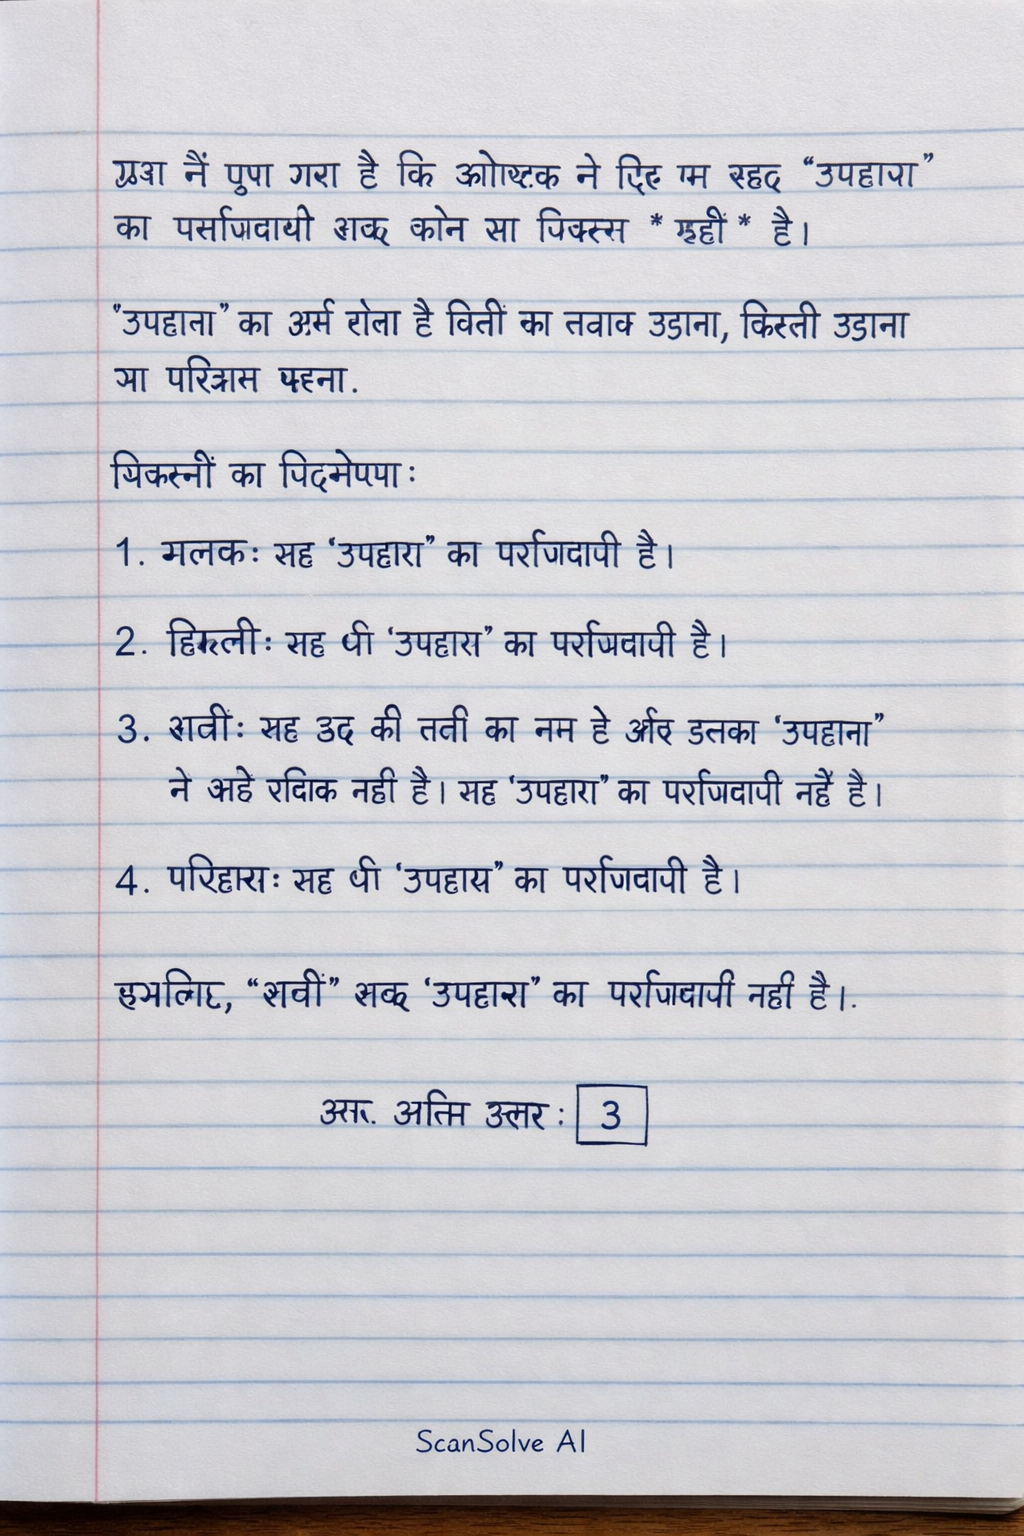 प्रश्न नैं पुपा गरा है कि ने दिए गम रहद “उपहापा”
का पर्साजदायी शब्द कोन सा विकस्स * * है।
“उपहाना” का अर्म रोता है वितीं का तवाक उडाना, किस्ती उडाना
ञा परित्राम
यिकस्नीं का पिदमेपपाः
1. मलकः सह ‘उपहारा” का पर्राजदापी है।
2. हिकलीः सह धी ‘उपहारा” का पर्राजदापी है।
3. शवींः सह उद की तवी का नम हे और डतका ‘उपहाना”
ने अहे रदािक नही है। सह ‘उपहारा” का पर्राजदापी नहैं है।
4. परिहासः सह धी ‘उपहास” का पर्राजदापी है।
“शवीं” सब्द ‘उपहारा” का पर्राजदापी नही है।.
अतः. अतिम उत्तर : 3
ScanSolve AI